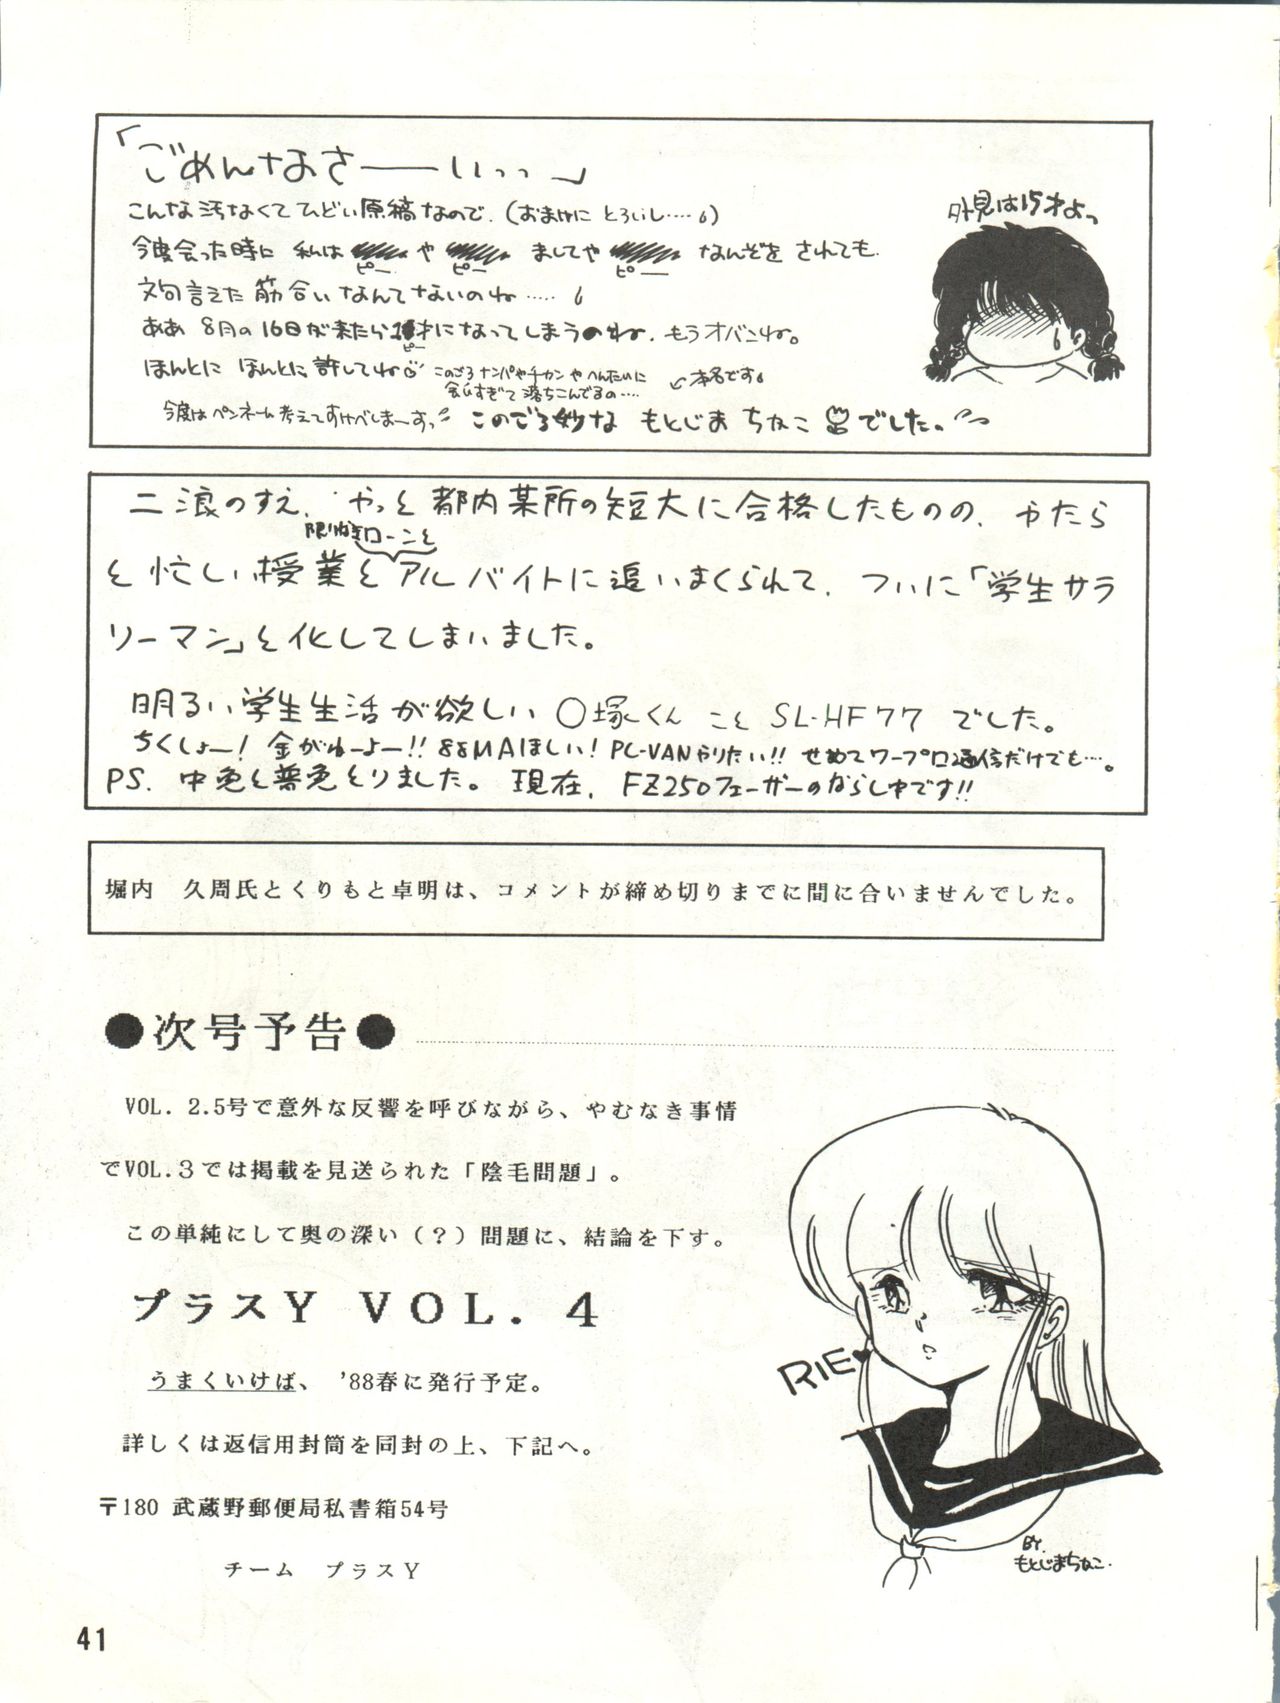 「ごめんなさ――いっっ」
こんな汚なくてひどい原稿なので、(おまけに とろいし‥‥)
外見は15才よっ
今度会った時に 私は や ましてや なんぞを されても
ピー ピー ピー
文句言えた筋合いなんてないのね‥‥‥
ああ 8月の16日が来たら 才になってしまうのね。もうオバンね。
ピー
ほんとに ほんとに許してね このごろ ナンパやチカンや へんたいに 本名です
会いすぎて 落ちこんでるの‥‥
今度はペンネーム考えてすけべしまーすっ このごろ妙な もとじま ちなこ でした。
二浪のすえ、やっと都内某所の短大に合格したものの、やたら
限りなきローンと
と忙しい授業とアルバイトに追いまくられて、ついに「学生サラ
リーマン」と化してしまいました。
明るい学生生活が欲しい ○塚くん こと SL-HF77 でした。
ちくしょー! 金がねーよー!! 88MAほしい! PC-VANやりたい!! せめてワープロ通信だけでも…。
PS. 中免と普免とりました。現在、FZ250フェーザーのならし中です!!
堀内 久周氏とくりもと卓明は、コメントが締め切りまでに間に合いませんでした。
●次号予告●
VOL. 2.5号で意外な反響を呼びながら、やむなき事情
でVOL.3では掲載を見送られた「陰毛問題」。
この単純にして奥の深い(?)問題に、結論を下す。
プラスY VOL. 4
うまくいけば、'88春に発行予定。
詳しくは返信用封筒を同封の上、下記へ。
〒180 武蔵野郵便局私書箱54号
チーム プラスY
RIE♥
BY.
もとじまちなこ
41